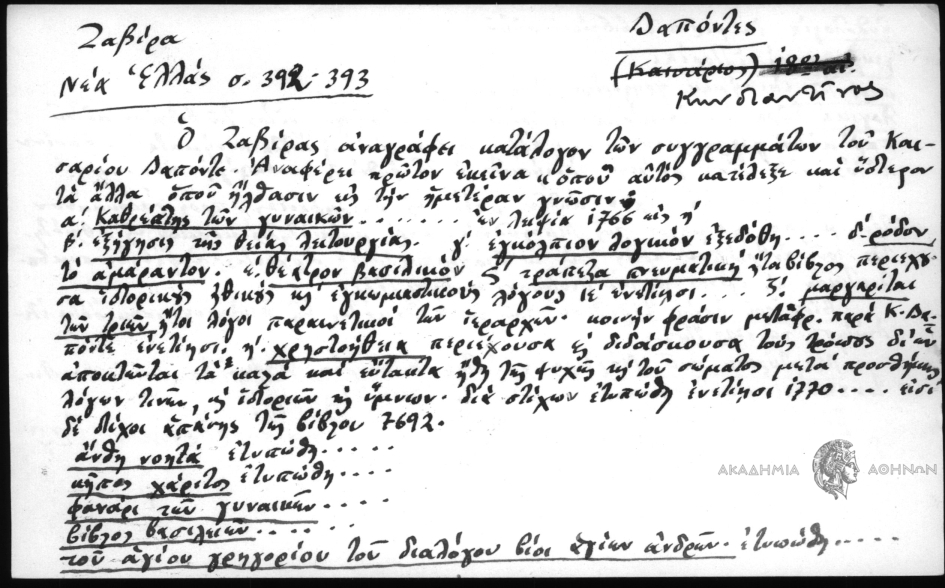 Ζαβίρα
Νέα Ἑλλάς σ. 392-393
Δαπόντες
(Καισάριος)
Κωνσταντῖνος
Ὁ Ζαβίρας ἀναγράφει κατάλογον τῶν συγγραμμάτων τοῦ Και-
σαρίου Δαπόντε. Ἀναφέρει πρῶτον ἐκεῖνα "ὁποῦ αὐτὸς κατέλεξε καὶ ὕστερον
τὰ ἄλλα ὁποῦ ἦλθασιν εἰς τὴν ἡμετέραν γνῶσιν
α΄ Καθρέπτης τῶν γυναικῶν....... ἐν Λειψίᾳ 1766 εἰς η΄
β΄ ἐξήγησις τῆς θείας λειτουργίας. γ΄ ἐγκόλπιον λογικὸν ἐξεδόθη.... δ΄ ρόδον
τὸ ἀμάραντον. ε΄ θέατρον βασιλικὸν ς΄ τράπεζα πνευματικὴ ἥτις βίβλος περιέχου-
σα ἱστορικοὺς ἠθικοὺς κ' ἐγκωμιαστικοὺς λόγους ιε΄ ἐνετίῃσι... ζ΄ μαργαρῖται
τῶν τριῶν ἤτοι λόγοι παραινετικοὶ τῶν ἱεραρχῶν κοινὴν φράσιν μεταφρ. παρὰ Κ. Δα-
πόντε ἐνετίῃσι. η΄ χρηστοήθεια περιέχουσα κ' διδάσκουσα τοὺς τρόπους δι' ὧν
ἀποκτῶνται τὰ καλὰ καὶ εὔτακτα ἤθη τῆς ψυχῆς κ' τοῦ σώματος μετὰ προσθήκης
λόγων τινῶν, κ' ἱστοριῶν κ' ὕμνων. διὰ στίχων ἐτυπώθη ἐνετίῃσι 1770.... εἰσὶ
δὲ στίχοι ἁπάσης τῆς βίβλου 7692.
ἄνθη νοητὰ ἐτυπώθη.....
κῆπος χάριτος ἐτυπώθη....
φανάρι τῶν γυναικῶν....
βίβλος βασιλειῶν......
τοῦ ἁγίου γρηγορίου τοῦ διαλόγου βίοι ἁγίων ἀνδρῶν. ἐτυπώθη.....
ΑΚΑΔΗΜΙΑ ΑΘΗΝΩΝ